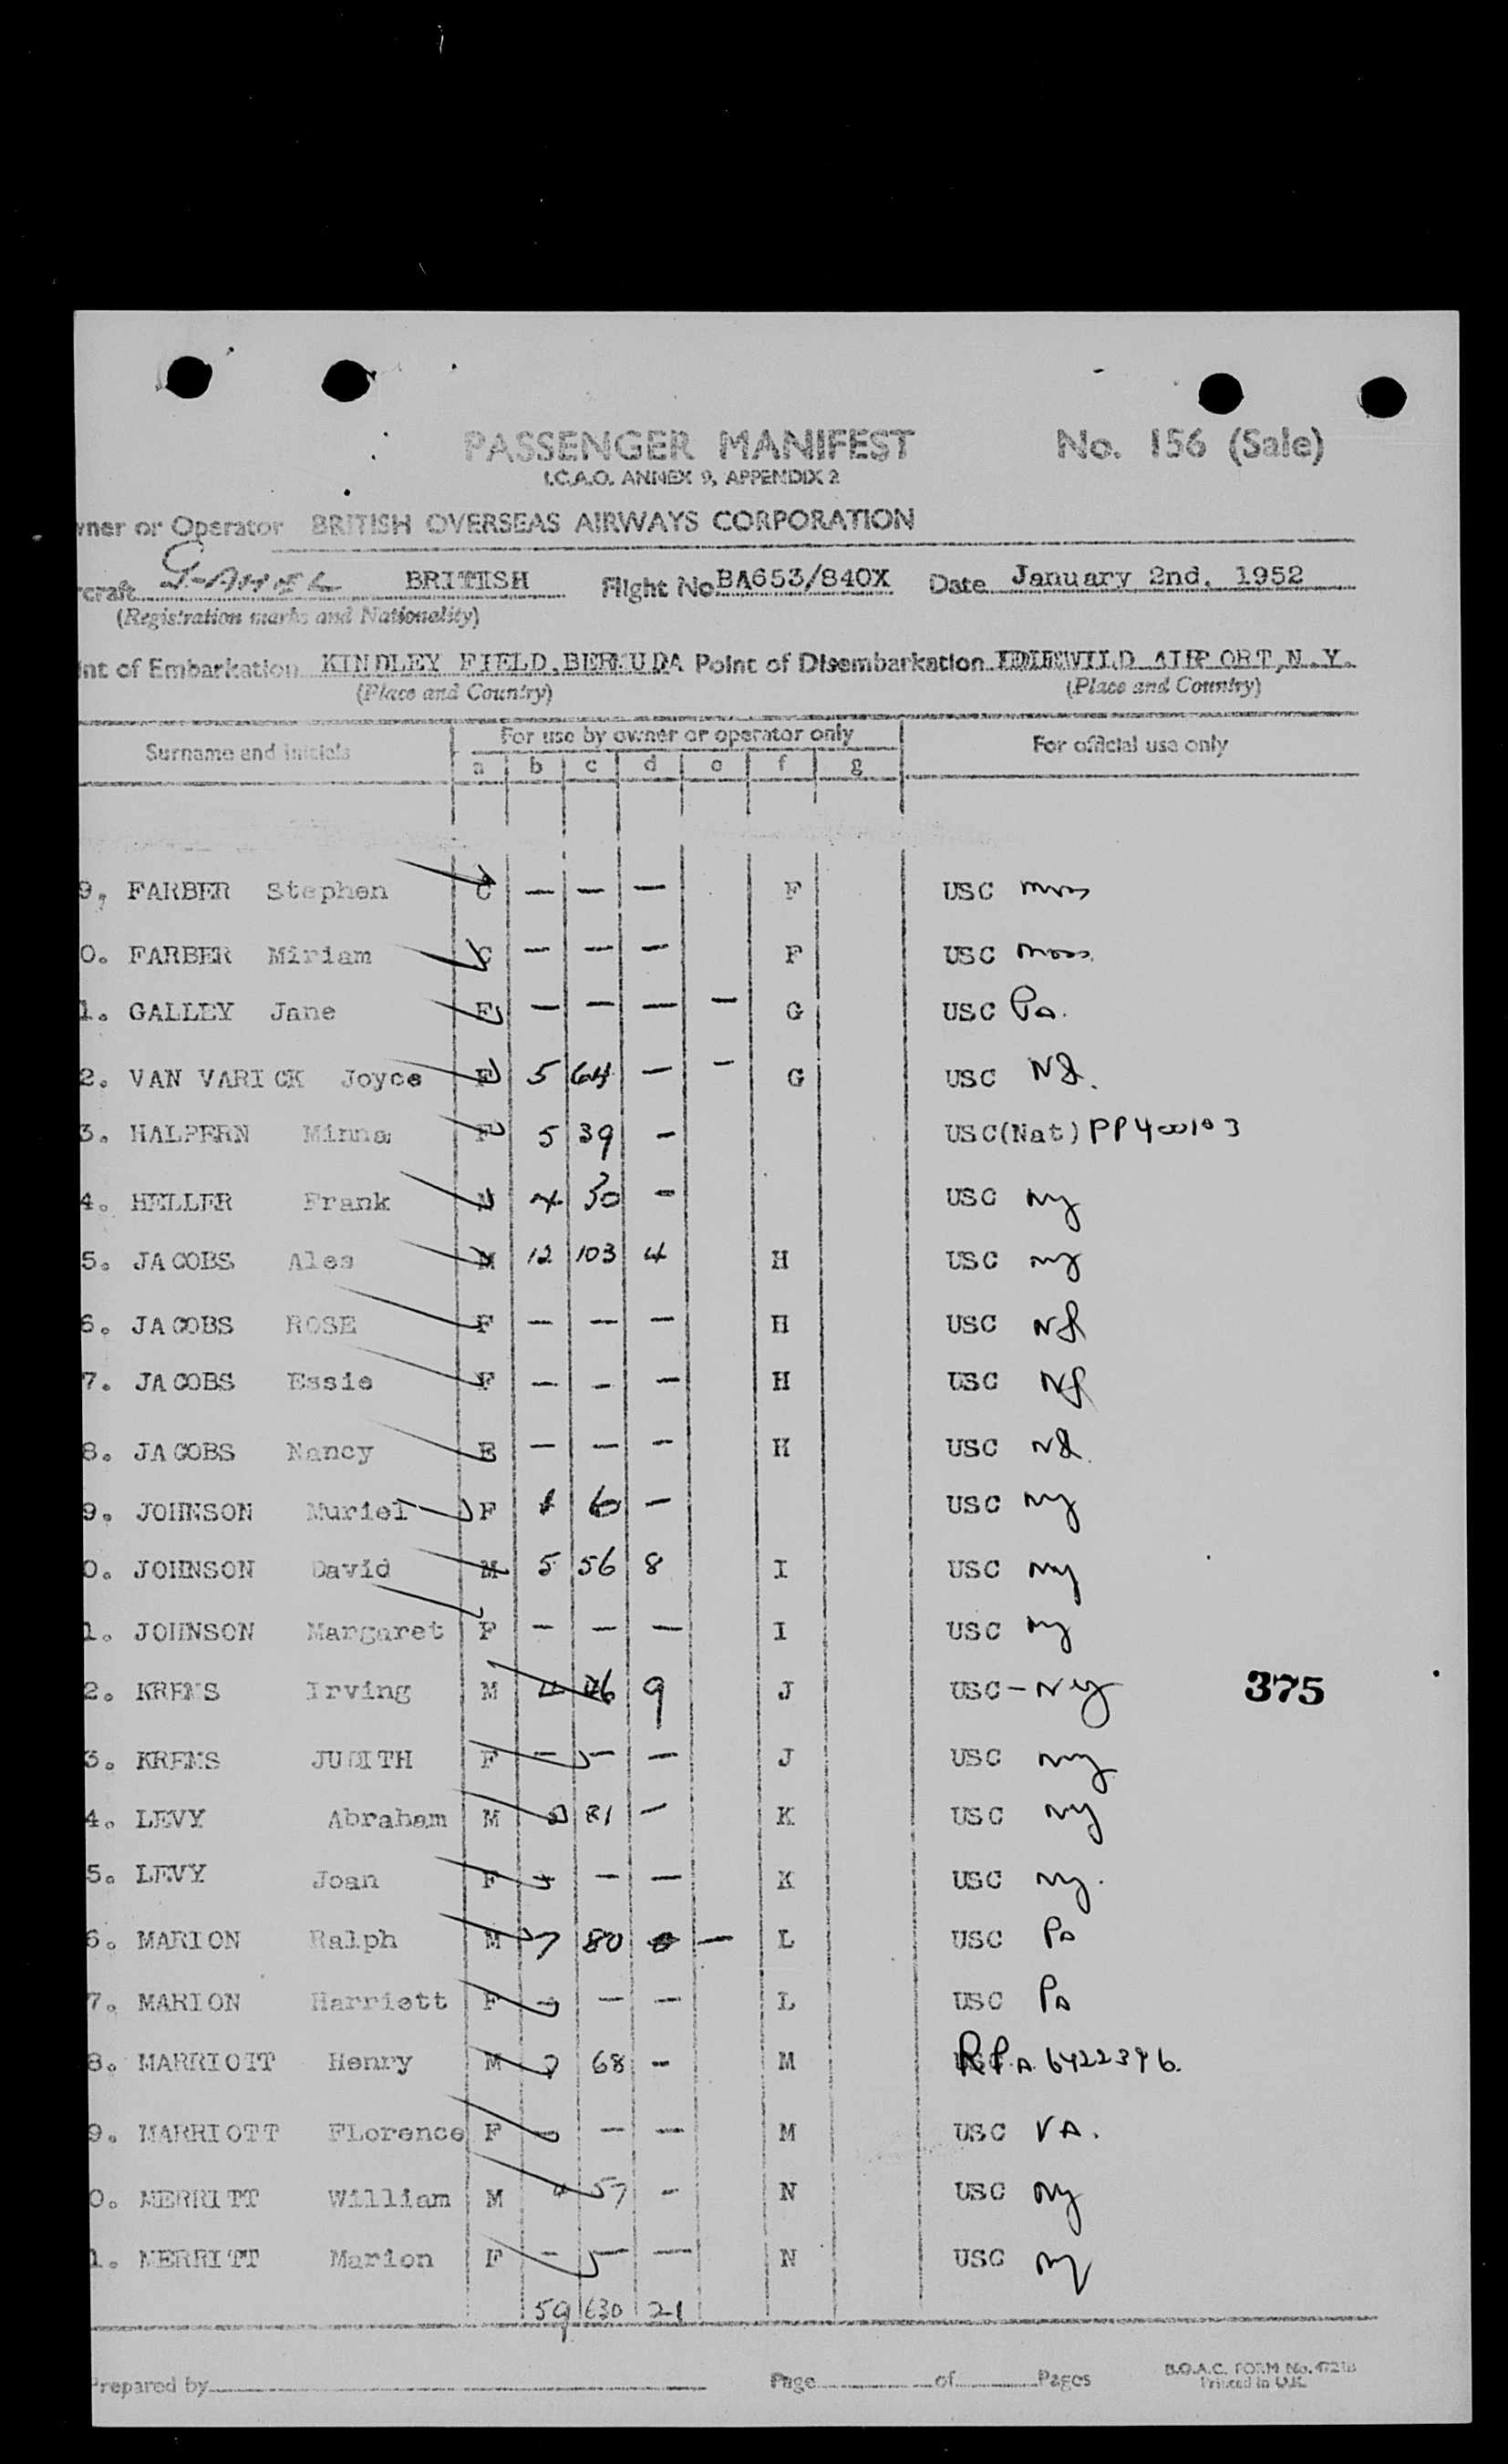 PASSENGER MANIFEST No. 156 (Sale)
I.C.A.O. ANNEX 9, APPENDIX 2
wner or Operator BRITISH OVERSEAS AIRWAYS CORPORATION
rcraft BRITISH Flight No. BA653/840X Date January 2nd, 1952
(Registration marks and Nationality)
int of Embarkation KINDLEY FIELD, BERMUDA Point of Disembarkation IDLEWILD AIRPORT, N.Y.
(Place and Country) (Place and Country)
Surname and initials For use by owner or operator only For official use only
a b c d e f g
9. FARBER Stephen C — — — F USC mass
0. FARBER Miriam C — — — F USC mass.
1. GALLEY Jane F — — — — G USC Pa.
2. VAN VARICK Joyce F 5 64 — — G USC NJ.
3. HALPERN Minna F 5 39 — USC(Nat) PP400103
4. HELLER Frank M 4 30 — USC ny
5. JACOBS Ales M 12 103 4 H USC ny
6. JACOBS ROSE F — — — H USC NJ
7. JACOBS Essie F — — — H USC NJ
8. JACOBS Nancy F — — — H USC NJ.
9. JOHNSON Muriel F 1 6 — USC ny
0. JOHNSON David M 5 56 8 I USC ny
1. JOHNSON Margaret F — — — I USC ny
2. KREMS Irving M 4 46 9 J USC - Ny 375
3. KREMS JUDITH F — — — J USC ny
4. LEVY Abraham M 81 — K USC ny
5. LEVY Joan F — — — K USC ny.
6. MARION Ralph M 7 80 — L USC Pa
7. MARION Harriett F — — — L USC Pa
8. MARRIOTT Henry M 7 68 — M RPA 6422396.
9. MARRIOTT Florence F — — — M USC VA.
0. MERRITT William M 4 57 — N USC ny
1. MERRITT Marion F — — — N USC ny
59 630 21
Prepared by Page of Pages B.O.A.C. FORM No.
Printed in U.K.